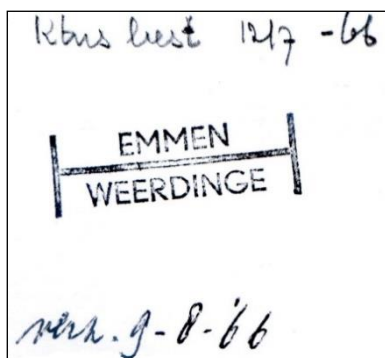 Kbns best 12/7 -66
EMMEN
WEERDINGE
verz. 9-8-'66